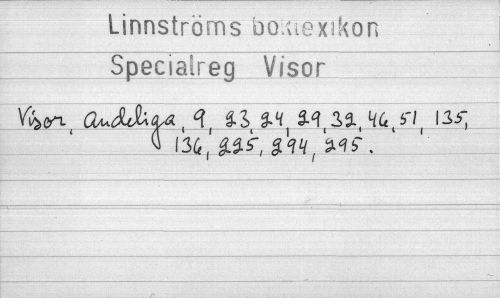 Linnströms boklexikon
Specialreg Visor
Visor, andeliga, 9, 23, 24, 29, 32, 46, 51, 135,
136, 225, 294, 295.